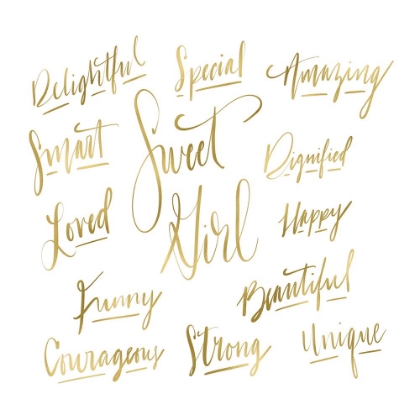 Delightful
Special
Amazing
Smart
Sweet
Dignified
Loved
Girl
Happy
Funny
Beautiful
Courageous
Strong
Unique